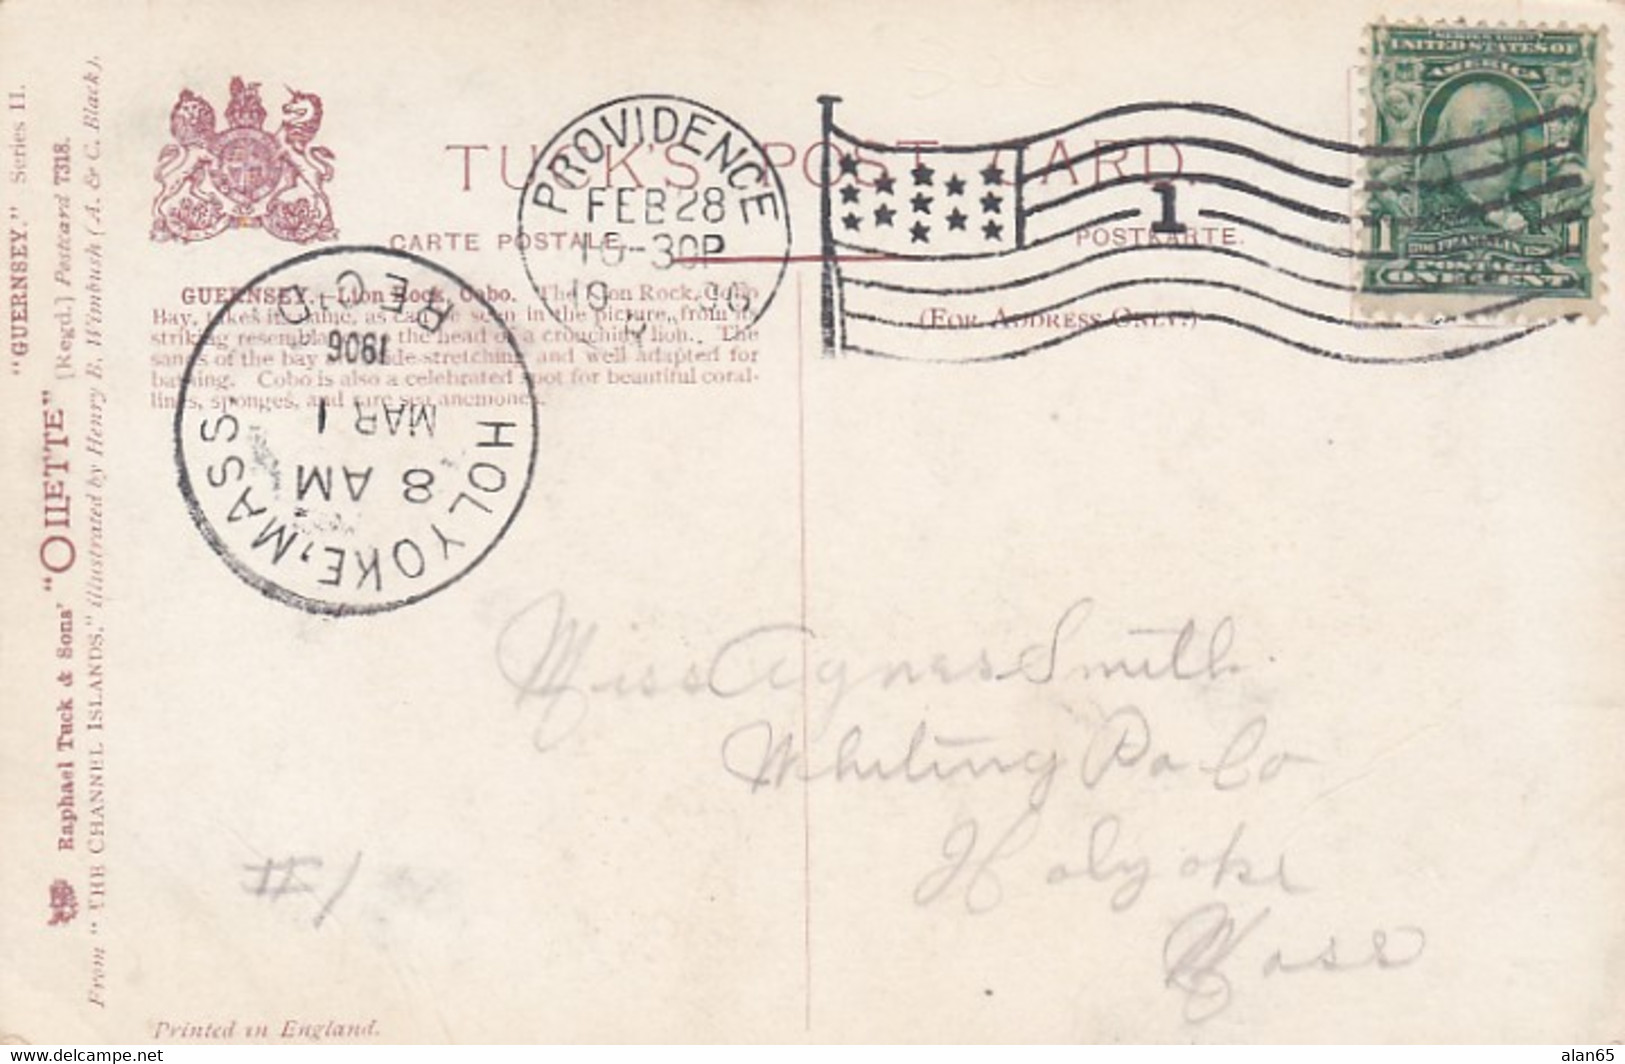 "GUERNSEY." Series II.
Raphael Tuck & Sons' "OILETTE" [Regd.] Postcard 7318.
From "THE CHANNEL ISLANDS," illustrated by Henry B. Wimbush (A. & C. Black).
TUCK'S POST CARD.
CARTE POSTALE. POSTKARTE.
(FOR ADDRESS ONLY.)
GUERNSEY.—Lion Rock, Cobo. The Lion Rock, Cobo
Bay, takes its name, as can be seen in the picture, from its
striking resemblance to the head of a crouching lion. The
sands of the bay are wide-stretching and well adapted for
bathing. Cobo is also a celebrated spot for beautiful coral-
lines, sponges, and rare sea anemones.
PROVIDENCE
FEB 28
-30P
1
UNITED STATES OF
AMERICA
1 1
POSTAGE
ONE CENT
HOLYOKE, MASS.
8 AM
MAR 1
1906
REC'D
Miss Agnes Smith
Whiting Pa Co
Holyoke
Mass
#1
Printed in England.
alan65